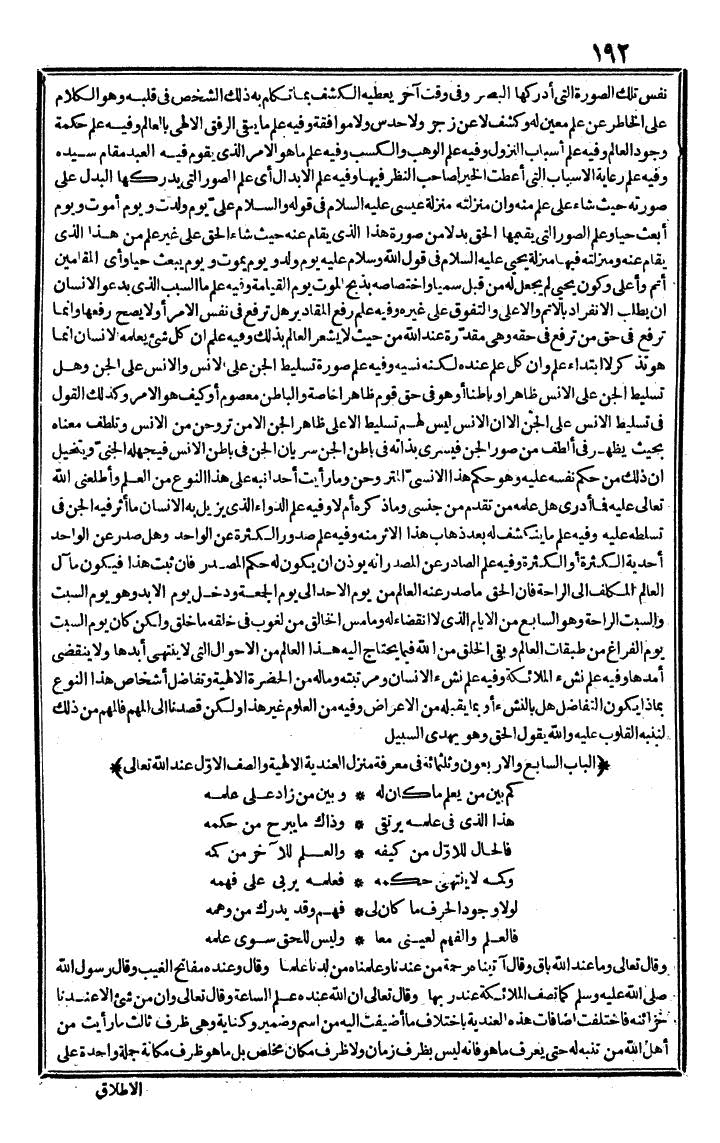 ١٩٢
نفس تلك الصورة التي أدركها البصر وفي وقت آخر يعطيه الكشف بما تكلم به ذلك الشخص في قلبه وهو الكلام
على الخاطر عن علم معين له وكشف لا عن زجر ولا حدس ولا موافقة وفيه علم ما ينتج الرفق الالهي بالعالم وفيه علم حكمة
وجود العالم وفيه علم أسباب النزول وفيه علم الوهب والكسب وفيه علم ما هو الامر الذي يقوم فيه العبد مقام سيده
وفيه علم رعاية الاسباب التي أعطت الخير لصاحب النظر فيها وفيه علم الابدال أي علم الصور التي يدركها البدل على
صورته حيث شاء على علم منه وان منزلته منزلة عيسى عليه السلام في قوله والسلام علىّ يوم ولدت ويوم أموت ويوم
أبعث حيا وعلم الصور التي يقيمها الحق بدلا من صورة هذا الذي يقام عنه حيث شاء الحق على غير علم من هذا الذي
يقام عنه ومنزلته فيها منزلة يحيى عليه السلام في قول الله وسلام عليه يوم ولد ويوم يموت ويوم يبعث حيا وأي المقامين
أتم وأعلى وكون يحيى لم يجعل له من قبل سميا واختصاصه بذبح الموت يوم القيامة وفيه علم ما السبب الذي يدعو الانسان
ان يطلب الانفراد بالاتم والاعلى والتفوّق على غيره وفيه علم رفع المقادير هل ترفع في نفس الامر أو لا يصح رفعها وانما
ترفع في حق من ترفع في حقه وهي مقدّرة عند الله من حيث لا يشعر العالم بذلك وفيه علم ان كل شئ يعلمه الانسان انما
هو تذكر لا ابتداء علم وان كل علم عنده لكنه نسيه وفيه علم صورة تسليط الجن على الانس والانس على الجن وهل
تسليط الجن على الانس ظاهرا وباطنا أو هو في حق قوم ظاهرا خاصة والباطن معصوم أو كيف هو الامر وكذلك القول
في تسليط الانس على الجنّ الا ان الانس ليس لهم تسليط الا على ظاهر الجن الا من تروحن من الانس وتلطف معناه
بحيث يظهر في ألطف من صور الجن فيسرى بذاته في باطن الجن سريان الجن في باطن الانس فيجهله الجني ويتخيل
ان ذلك من حكم نفسه عليه وهو حكم هذا الانسيّ المتروحن وما رأيت أحدا نبه على هذا النوع من العلم وأطلعني الله
تعالى عليه فما أدرى هل علمه من تقدم من جنسي وما ذكره أم لا وفيه علم الدواء الذي يزيل به الانسان ما أثر فيه الجن في
تسلطه عليه وفيه علم ما ينكشف له بعد ذهاب هذا الاثر منه وفيه علم صدور الكثرة عن الواحد وهل صدر عن الواحد
أحدية الكثرة أو الكثرة وفيه علم الصادر عن المصدر انه يوذن ان يكون له حكم المصدر فان ثبت هذا فيكون مآل
العالم المكلف الى الراحة فان الحق ما صدر عنه العالم من يوم الاحد الى يوم الجمعة ودخل يوم الابد وهو يوم السبت
والسبت الراحة وهو السابع من الايام الذي لا انقضاء له وما مس الخالق من لغوب في خلقه ما خلق ولكن كان يوم السبت
يوم الفراغ من طبقات العالم وبقى الخلق من الله فيما يحتاج اليه هذا العالم من الاحوال التي لا ينتهي أبدها ولا ينقضي
أمدها وفيه علم نشء الملائكة وفيه علم نشء الانسان ومرتبته وماله من الحضرة الالهية وتفاضل أشخاص هذا النوع
بماذا يكون التفاضل هل بالنشء أو بما يقبله من الاعراض وفيه من العلوم غير هذا ولكن قصدنا الى المهم فالمهم من ذلك
لننبه القلوب عليه والله يقول الحق وهو يهدى السبيل
﴿الباب السابع والاربعون وثلثمائة في معرفة منزل العندية الالهية والصف الاوّل عند الله تعالى﴾
كم بين من يعلم ما كان له * وبين من زاد على علمه
هذا الذي في علمه يرتقى * وذاك ما يبرح من حكمه
فالحال للاوّل من كيفه * والعلم للآخر من كمه
وكمه لا ينتهى حكمه * فعلمه يربى على فهمه
لولا وجود الحرف ما كان لى * فهم وقد يدرك من وهمه
فالعلم والفهم لعيني معا * وليس للحق سوى علمه
وقال تعالى وما عند الله باق وقال آتيناه رحمة من عندنا وعلمناه من لدنا علما وقال وعنده مفاتح الغيب وقال رسول الله
صلى الله عليه وسلم كما تصف الملائكة عند ربها وقال تعالى ان الله عنده علم الساعة وقال تعالى وان من شئ الا عندنا
خزائنه فاختلفت اضافات هذه العندية باختلاف ما أضيفت اليه من اسم وضمير وكناية وهي ظرف ثالث ما رأيت من
أهل الله من تنبه له حتى يعرف ما هو فانه ليس بظرف زمان ولا ظرف مكان مخلص بل ما هو ظرف مكانة جملة واحدة على
الاطلاق